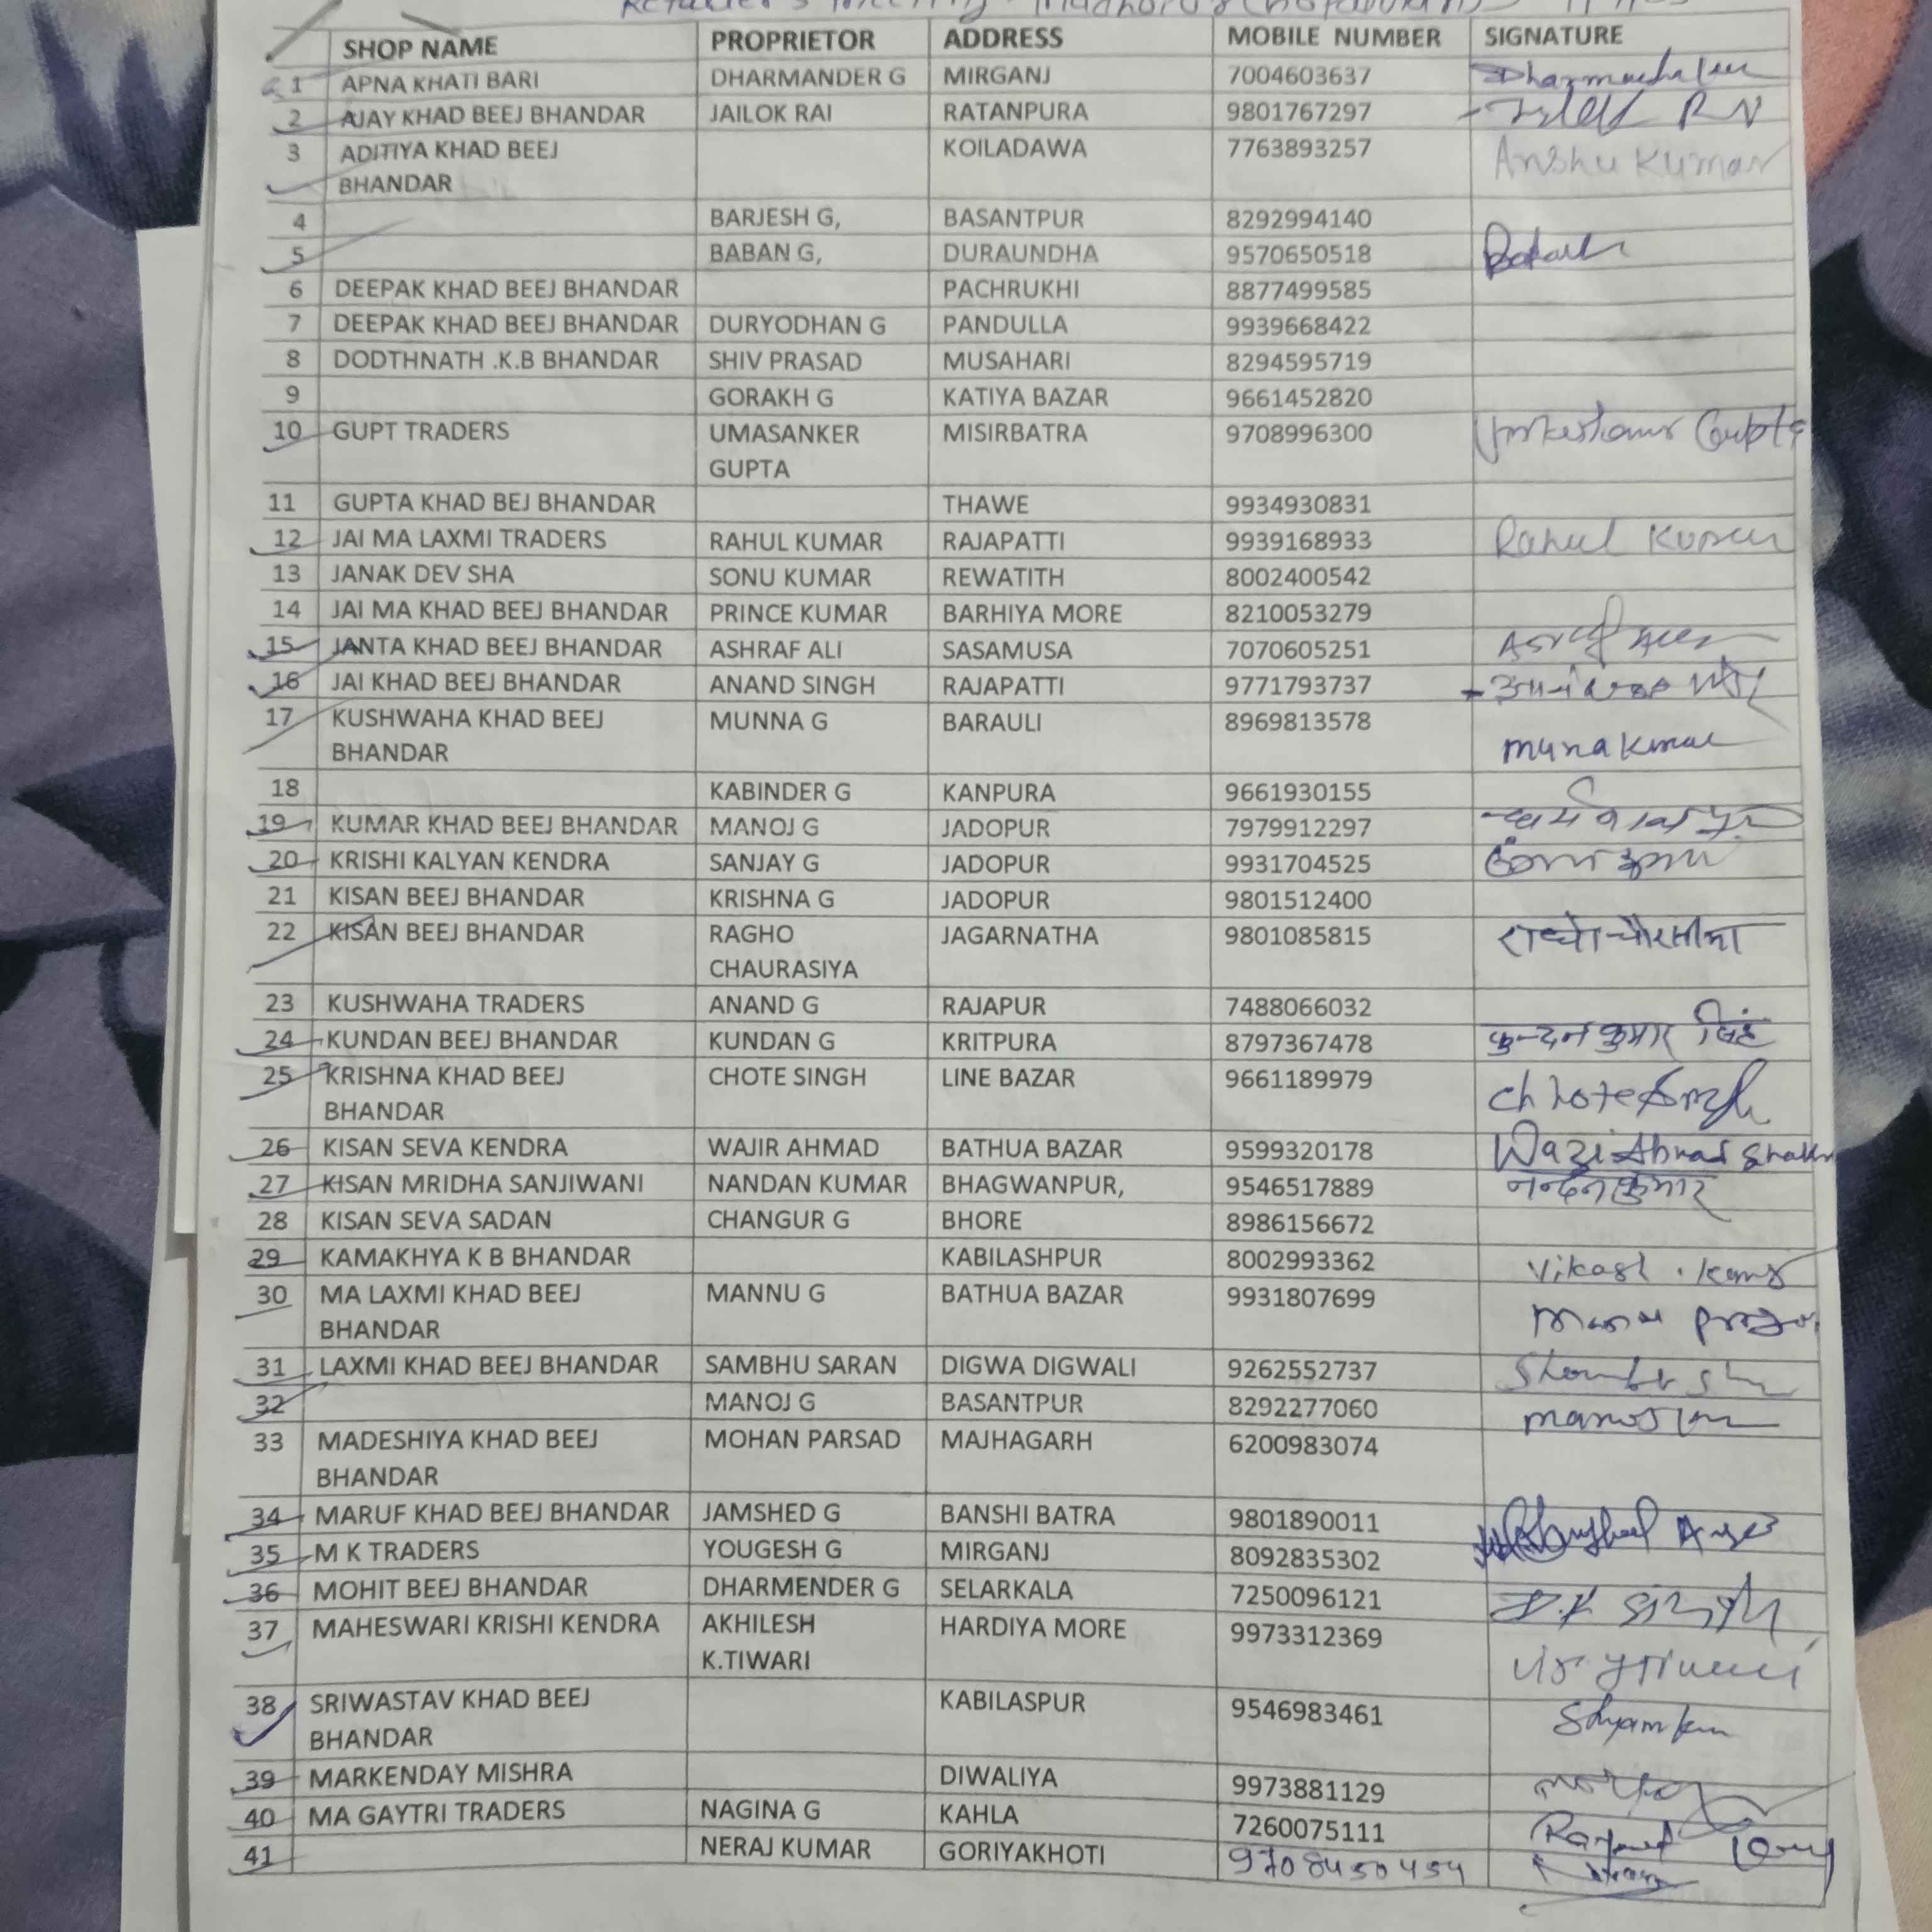 Retailer's Meeting
SHOP NAME PROPRIETOR ADDRESS MOBILE NUMBER SIGNATURE
1 APNA KHATI BARI DHARMANDER G MIRGANJ 7004603637
2 AJAY KHAD BEEJ BHANDAR JAILOK RAI RATANPURA 9801767297
3 ADITIYA KHAD BEEJ KOILADAWA 7763893257 Anshu Kumar
BHANDAR
4 BARJESH G, BASANTPUR 8292994140
5 BABAN G, DURAUNDHA 9570650518
6 DEEPAK KHAD BEEJ BHANDAR PACHRUKHI 8877499585
7 DEEPAK KHAD BEEJ BHANDAR DURYODHAN G PANDULLA 9939668422
8 DODTHNATH .K.B BHANDAR SHIV PRASAD MUSAHARI 8294595719
9 GORAKH G KATIYA BAZAR 9661452820
10 GUPT TRADERS UMASANKER MISIRBATRA 9708996300 Gupta
GUPTA
11 GUPTA KHAD BEJ BHANDAR THAWE 9934930831
12 JAI MA LAXMI TRADERS RAHUL KUMAR RAJAPATTI 9939168933 Rahul Kumar
13 JANAK DEV SHA SONU KUMAR REWATITH 8002400542
14 JAI MA KHAD BEEJ BHANDAR PRINCE KUMAR BARHIYA MORE 8210053279
15 JANTA KHAD BEEJ BHANDAR ASHRAF ALI SASAMUSA 7070605251
16 JAI KHAD BEEJ BHANDAR ANAND SINGH RAJAPATTI 9771793737
17 KUSHWAHA KHAD BEEJ MUNNA G BARAULI 8969813578
BHANDAR muna kumar
18 KABINDER G KANPURA 9661930155
19 KUMAR KHAD BEEJ BHANDAR MANOJ G JADOPUR 7979912297
20 KRISHI KALYAN KENDRA SANJAY G JADOPUR 9931704525
21 KISAN BEEJ BHANDAR KRISHNA G JADOPUR 9801512400
22 KISAN BEEJ BHANDAR RAGHO JAGARNATHA 9801085815
CHAURASIYA
23 KUSHWAHA TRADERS ANAND G RAJAPUR 7488066032
24 KUNDAN BEEJ BHANDAR KUNDAN G KRITPURA 8797367478 कुन्दन कुमार सिंह
25 KRISHNA KHAD BEEJ CHOTE SINGH LINE BAZAR 9661189979 Chhote Singh
BHANDAR
26 KISAN SEVA KENDRA WAJIR AHMAD BATHUA BAZAR 9599320178
27 KISAN MRIDHA SANJIWANI NANDAN KUMAR BHAGWANPUR, 9546517889 नन्दन कुमार
28 KISAN SEVA SADAN CHANGUR G BHORE 8986156672
29 KAMAKHYA K B BHANDAR KABILASHPUR 8002993362 Vikash
30 MA LAXMI KHAD BEEJ MANNU G BATHUA BAZAR 9931807699
BHANDAR
31 LAXMI KHAD BEEJ BHANDAR SAMBHU SARAN DIGWA DIGWALI 9262552737
32 MANOJ G BASANTPUR 8292277060
33 MADESHIYA KHAD BEEJ MOHAN PARSAD MAJHAGARH 6200983074
BHANDAR
34 MARUF KHAD BEEJ BHANDAR JAMSHED G BANSHI BATRA 9801890011
35 M K TRADERS YOUGESH G MIRGANJ 8092835302
36 MOHIT BEEJ BHANDAR DHARMENDER G SELARKALA 7250096121 D.K Singh
37 MAHESWARI KRISHI KENDRA AKHILESH HARDIYA MORE 9973312369
K.TIWARI
38 SRIWASTAV KHAD BEEJ KABILASPUR 9546983461
BHANDAR
39 MARKENDAY MISHRA DIWALIYA 9973881129
40 MA GAYTRI TRADERS NAGINA G KAHLA 7260075111
41 NERAJ KUMAR GORIYAKHOTI 9708450454